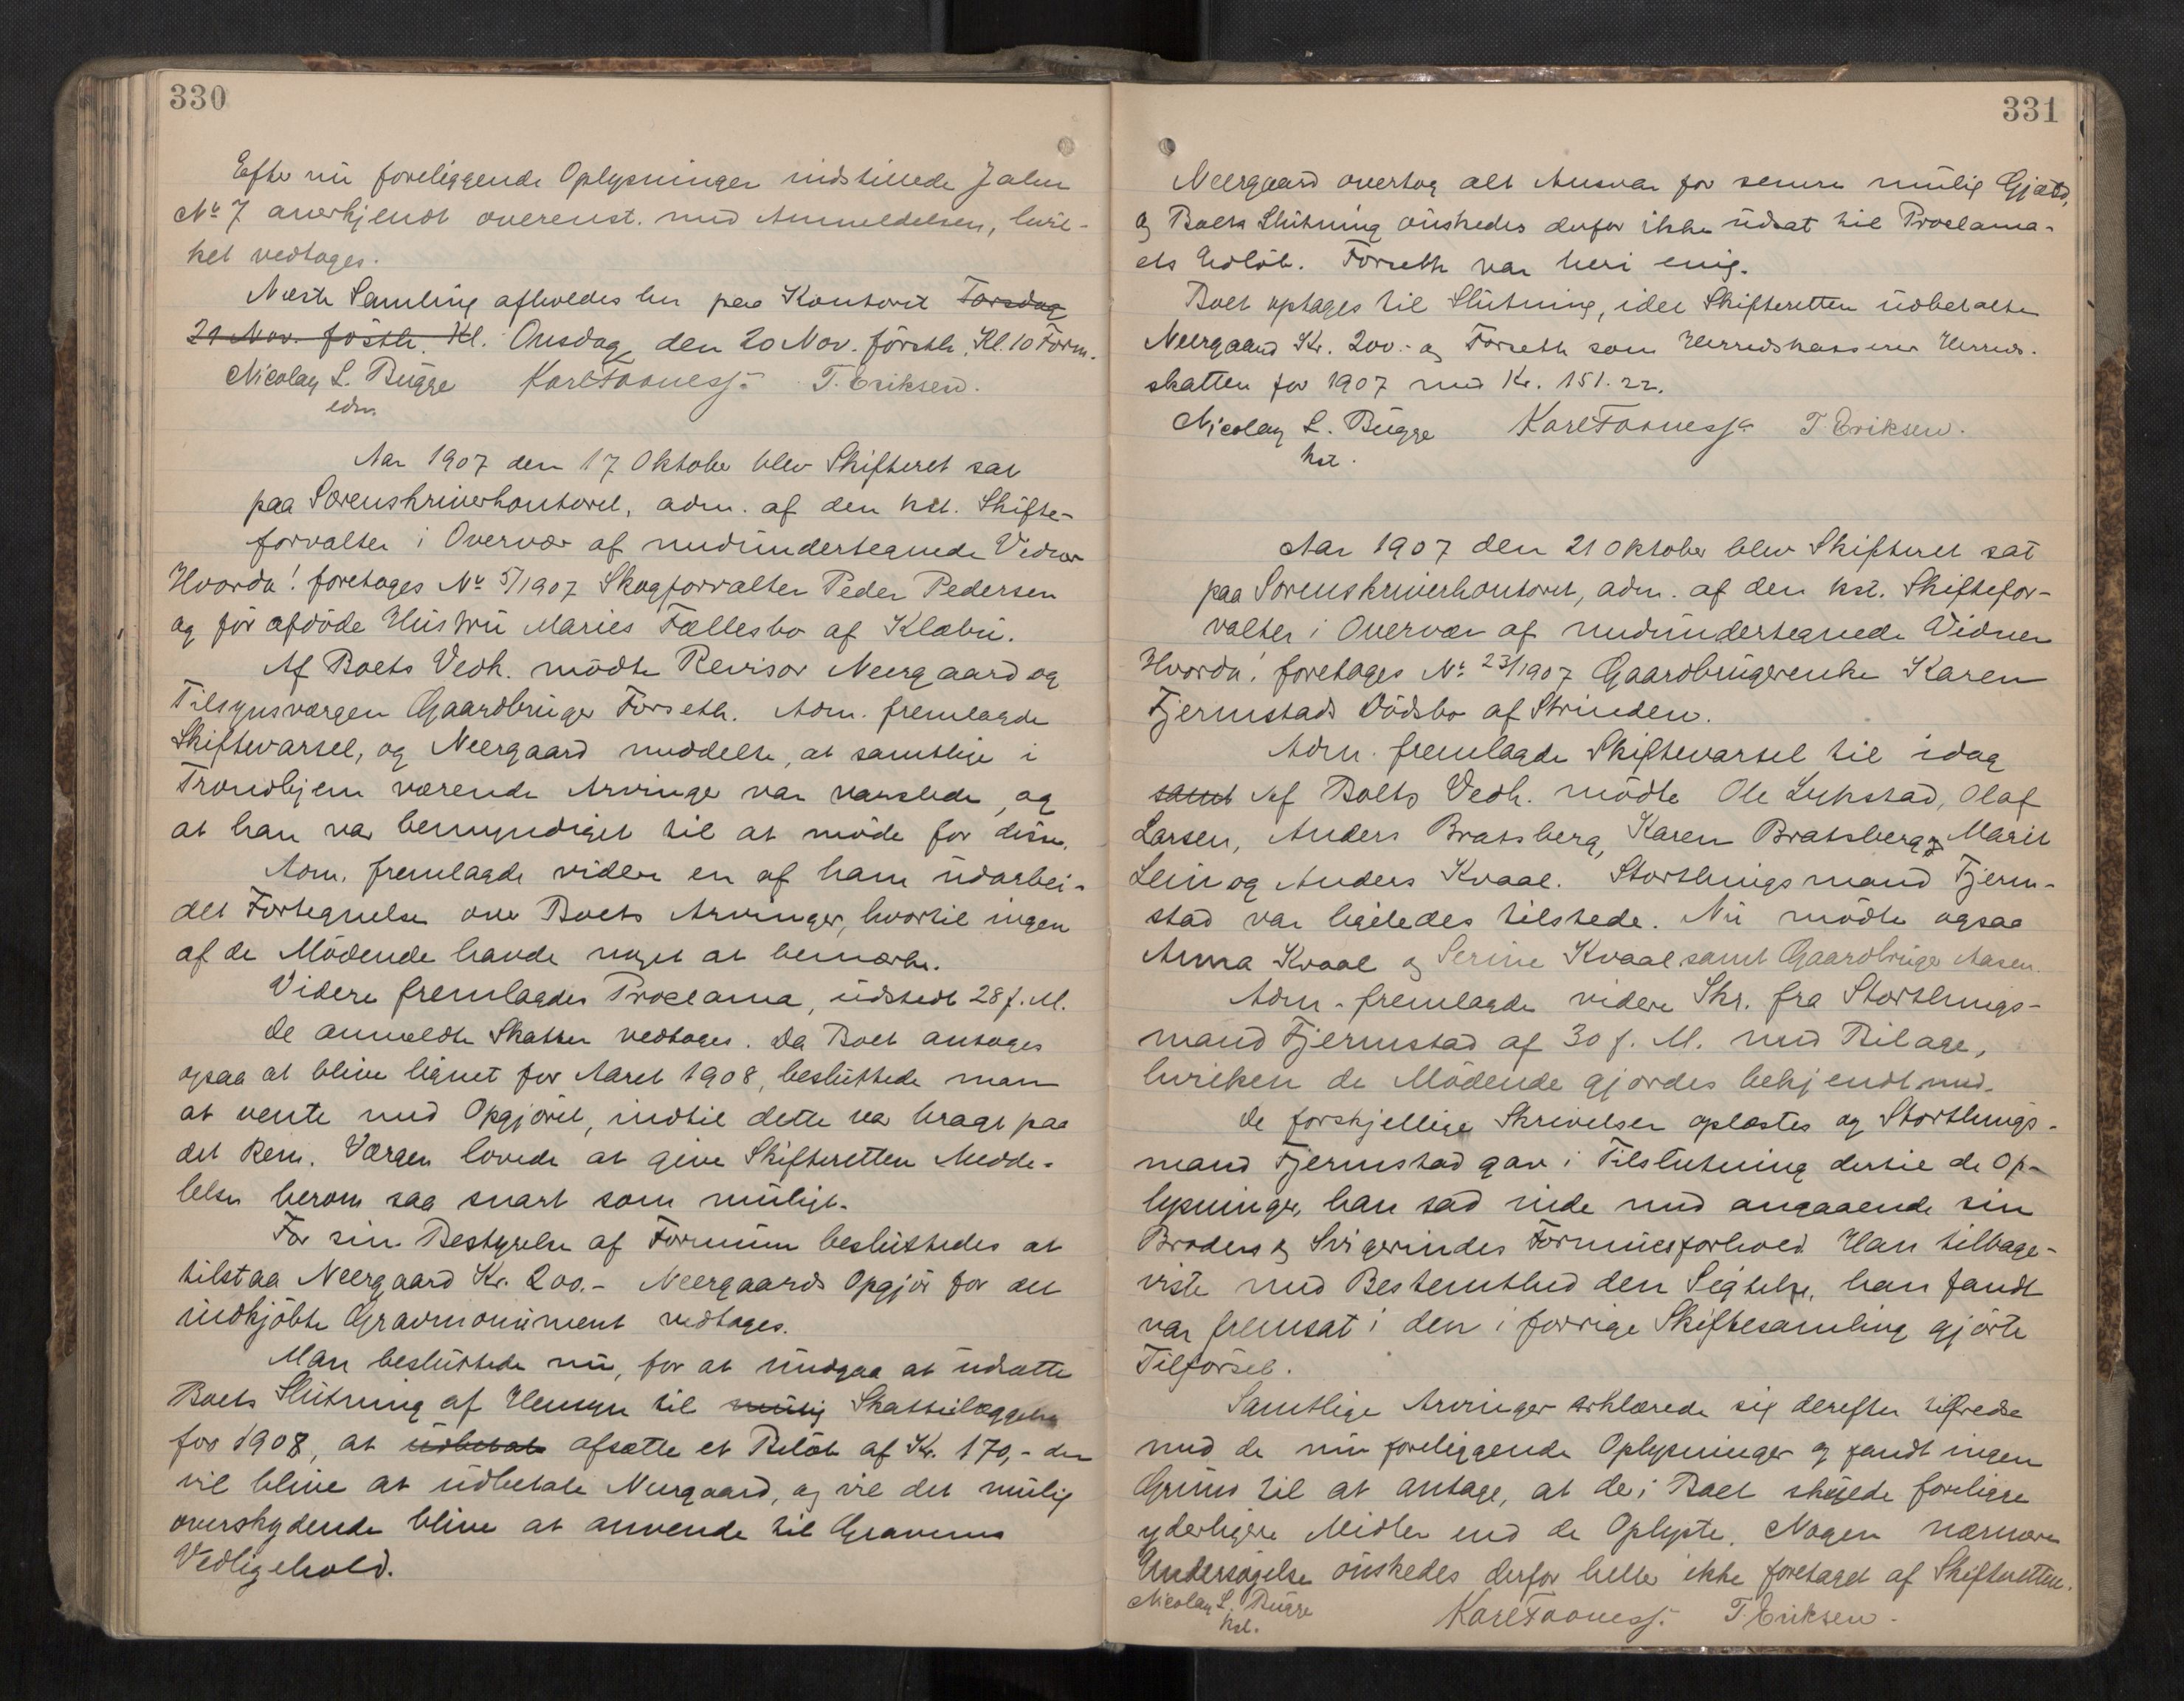 330
Efter nu foreliggende Oplysninger indstillede
No 7 anerkjendt overenst. med Anmeldelsen, hvil-
ket vedtoges.
Næste Samling afholdes her paa Kontoret Torsdag
21 Nov. førstk. Kl. Onsdag den 20 Nov. førstk. Kl. 10 Form.
Nicolay L. Bugge T. Eriksen.
Aar 1907 den 17 Oktober blev Skifteret sat
paa Sorenskriverkontoret, adm. af den kst. Skifte-
forvalter i Overvær af medundertegnede Vidner
Hvorda! foretoges No 5/1907 Skogforvalter Peder Pedersen
og før afdøde Hustru Maries Fællesbo af Klæbu.
Af Boets Vedk. mødte Revisor Neergaard og
Tilsynsværgen Gaardbruger Forseth. Adm. fremlagde
Skiftevarsel, og Neergaard meddelte, at samtlige i
Trondhjem værende Arvinger var varslede, og
at han var bemyndiget til at møde for disse.
Adm. fremlagde videre en af ham udarbei-
det Fortegnelse over Boets Arvinger, hvortil ingen
af de Mødende havde noget at bemærke.
Videre fremlagdes Proclama, udstedt 28 f. M.
De anmeldte Skatter vedtoges. Da Boet antoges
ogsaa at blive lignet for Aaret 1908, besluttede man
at vente med Opgjøret, indtil dette var bragt paa
det Rene. Værgen lovede at give Skifteretten Medde-
lelse herom saa snart som muligt.
For sin Bestyrelse af Formuen besluttedes at
tilstaa Neergaard Kr. 200.- Neergaards Opgjør for det
indkjøbte Gravmonument vedtoges.
Man besluttede nu, for at undgaa at udsætte
Boets Slutning af Hensyn til mulig Skatteilæggelse
for 1908, at udbetale afsætte et Beløb af Kr. 170,- der
vil blive at udbetale Neergaard, og vil det mulig
overskydende blive at anvende til Gravens
Vedligehold.
331
Neergaard overtog alt Ansvar for senere mulig Gjæld,
og Boets Slutning ønskedes derfor ikke udsat til Proclama-
ets Udløb. Forseth var heri enig.
Boet optages til Slutning, idet Skifteretten udbetalte
Neergaard Kr. 200.- og Forseth som Herredskasserer Herreds-
skatten for 1907 med Kr. 151.22.
Nicolay L. Bugge T. Eriksen.
kst.
Aar 1907 den 21 Oktober blev Skifteret sat
paa Sorenskriverkontoret, adm. af den kst. Skiftefor-
valter i Overvær af medundertegnede Vidner
Hvorda! foretoges No 23/1907 Gaardbrugerenke Karen
Fjermstads Dødsbo af Strinden.
Adm. fremlagde Skiftevarsel til idag
samt Af Boets Vedk. mødte Ole Lykstad, Olaf
Larsen, Anders Bratsberg, Karen Bratsberg, Marit
Lein og Anders Kvaal. Storthingsmand Fjerm-
stad var ligeledes tilstede. Nu mødte ogsaa
Anna Kvaal og Serine Kvaal samt Gaardbruger Aasen.
Adm. fremlagde videre Skr. fra Storthings-
mand Fjermstad af 30 f. M. med Bilage,
hvilken de Mødende gjordes bekjendt med.
De forskjellige Skrivelser oplæstes og Storthings-
mand Fjermstad gav i Tilslutning dertil de Op-
lysninger, han sad inde med angaaende sin
Broders og Svigerindes Formuesforhold. Han tilbage-
viste med Bestemthed den Sigtelse, han fandt
var fremsat i den i forrige Skiftesamling gjorte
Tilførsel.
Samtlige Arvinger erklærede sig derefter tilfredse
med de nu foreliggende Oplysninger og fandt ingen
Grund til at antage, at der i Boet skulde foreligge
yderligere Midler end de Oplyste. Nogen nærmere
Undersøgelse ønskedes derfor heller ikke foretaget af Skifteretten.
Nicolay L. Bugge T. Eriksen.
kst.